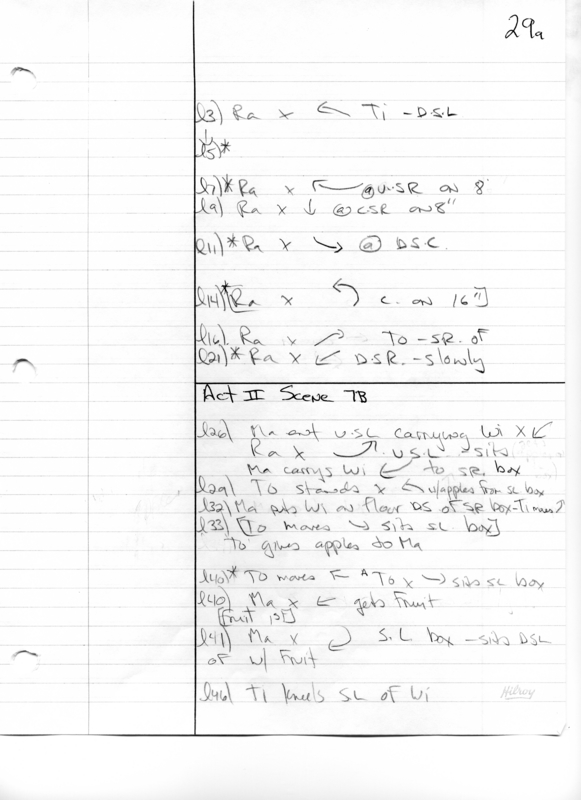 29a
l3) Ra x ← Ti - D.S.L
↓
l5)*
l7)* Ra x ↖ @ U.SR on 8'
l9) Ra x ↓ @ CSR on 8"
l11)* Ra x ↘ @ D.S.C.
l14)* [Ra x ↰ C. on 16"]
l16) Ra x ↗ To - SR. of
l21)* Ra x ↙ D.SR. - slowly
Act II Scene 7B
l26) Ma ent U.SL carrying Wi X ↙
Ra x ↗ U.S.L - sits
Ma carrys Wi ↙ to SR. box
l29) To stands x ← w/apples from SL box
l32) Ma puts Wi on floor DS of SR box - Ti moves ↗
l33) [To moves ↘ sits SL box]
To gives apples to Ma
l40)* To moves ↖ ^ To x ↘ sits SL box
l40) Ma x ↙ gets Fruit
[Fruit 1st]
l41) Ma x ⤶ S.L box - sits DSL
of w/ Fruit
l46) Ti kneels SL of Wi
Hilroy